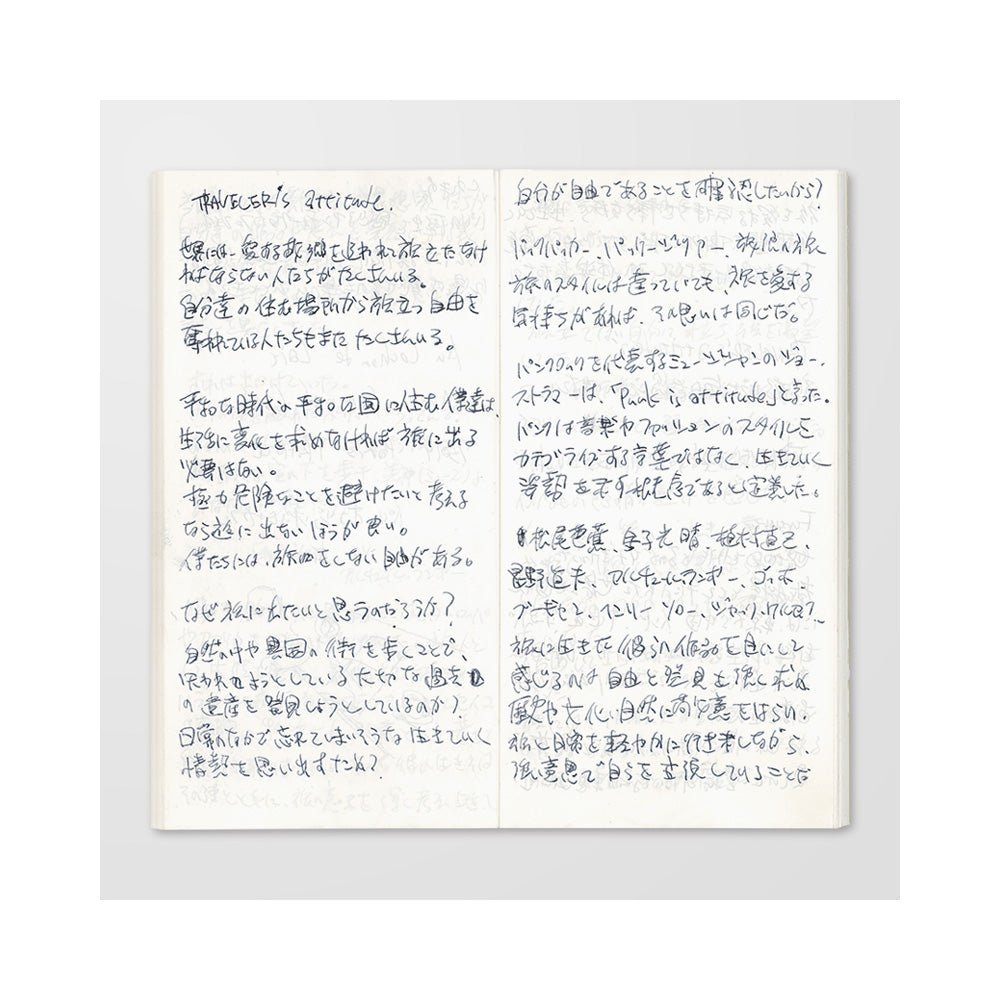 TRAVELER's attitude.
世界には、愛する故郷を追われて旅立たなけ
ればならない人たちがたくさんいる。
自分達の住む場所から旅立つ自由を
奪われている人たちもまたたくさんいる。
平和な時代の平和な国に住む僕達は、
生活に変化を求めなければ旅に出る
必要はない。
極力危険なことを避けたいと考える
なら旅に出ないほうが良い。
僕たちには、旅をしない自由がある。
なぜ旅に出たいと思うのだろうか?
自然の中や異国の街を歩くことで、
失われようとしている大切な過去
の遺産を発見しようとしているのか?
日常のなかで忘れてしまいそうな生きていく
情熱を思い出すため?
自分が自由であることを確認したいから?
バックパッカー、パッケージツアー、放浪の旅
旅のスタイルは違っていても、旅を愛する
気持ちがあれば、その思いは同じだ。
パンクロックを代表するミュージシャンのジョー・
ストラマーは、「Punk is attitude」と言った。
パンクは音楽やファッションのスタイルを
カテゴライズする言葉ではなく、生きていく
姿勢を示す根元であると定義した。
松尾芭蕉、金子光晴、植村直己、
星野道夫、アルチュールランボー、ゴッホ、
ゴーギャン、ヘンリーソロー、ジャックケルアック
旅に生きた彼らの作品を目にして
感じるのは自由と発見を強く求め
歴史や文化、自然に敬意をはらい、
旅と日常を軽やかに行き来しながら、
強い意思で自らを主張していることだ